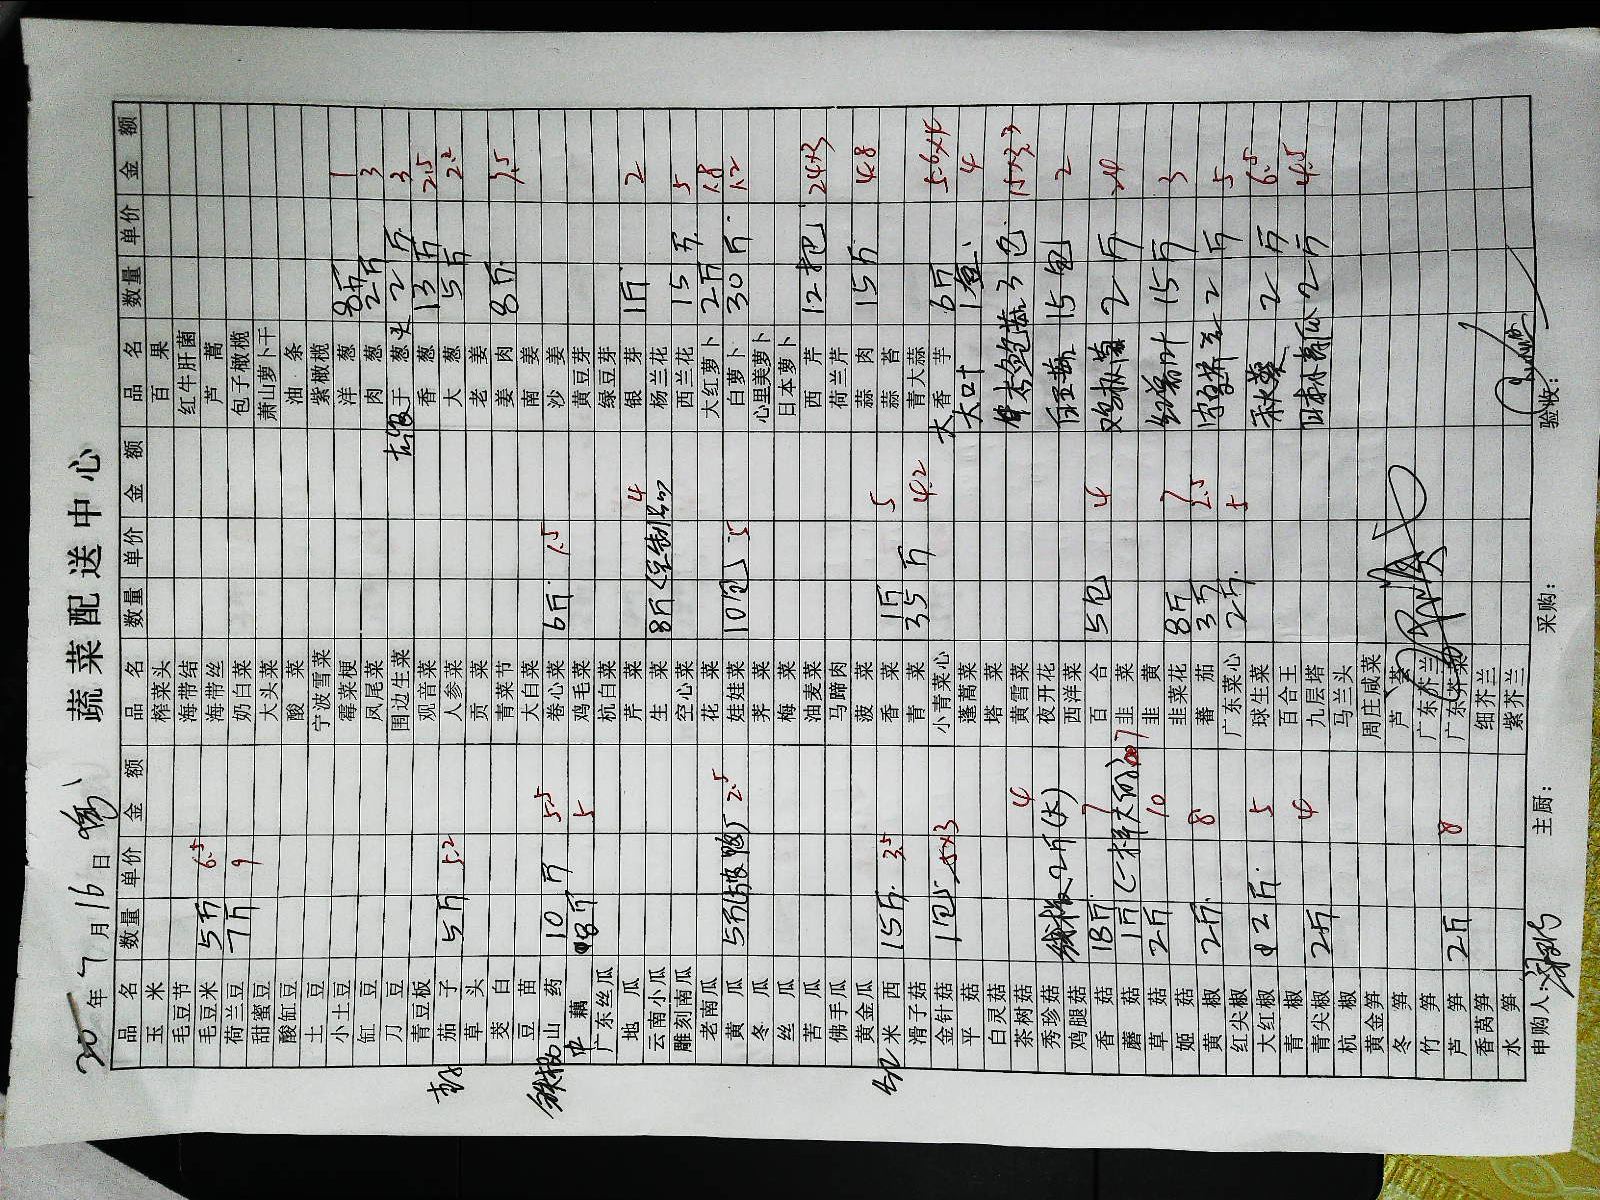 蔬菜配送中心
年 7 月 16 日
品名 数量 单价 金额 品名 数量 单价 金额 品名 数量 单价 金额
玉米 榨菜头 百果
毛豆节 海带结 红牛肝菌
毛豆米 5斤 6.5 海带丝 芦蒿
荷兰豆 7斤 9 奶白菜 包子橄榄
甜蜜豆 大头菜 萧山萝卜干
酸缸豆 酸菜 油条
土豆 宁波雪菜 紫橄榄
小土豆 霉菜梗 洋葱 8斤 1
缸豆 凤尾菜 肉葱 2斤 3
刀豆 围边生菜 干葱头 2斤 3
青豆板 观音菜 香葱 13斤 2.5
茄子 5斤 5.2 人参菜 大葱 5斤 2.2
草头 贡菜 老姜
茭白 青菜节 姜肉 8斤 7.5
豆苗 大白菜 南姜
铁棍山药 10斤 5.5 卷心菜 6斤 1.5 沙姜
中藕 8斤 5 鸡毛菜 黄豆芽
广东丝瓜 杭白菜 绿豆芽
地瓜 芹菜 银芽 1斤 2
云南小瓜 生菜 8斤 4 杨兰花
雕刻南瓜 空心菜 西兰花 15斤 5
老南瓜 花菜 大红萝卜 2斤 1.8
黄瓜 5斤 2.5 娃娃菜 10包 5 白萝卜 30斤 1.2
冬瓜 荠菜 心里美萝卜
丝瓜 梅菜 日本萝卜
苦瓜 油麦菜 西芹 12把 24×3
佛手瓜 马蹄肉 荷兰芹
黄金瓜 菠菜 蒜肉 15斤 4.8
红米西 15斤 3.5 香菜 1斤 5 蒜苔
滑子菇 青菜 35斤 4.2 青大蒜
金针菇 1包 5×3 小青菜心 大香芋 6斤 5.6×4
平菇 蓬蒿菜 大大口叶 1盒 4
白灵菇 塔菜
茶树菇 4 黄雪菜 3包 15×3.3
秀珍菇 夜开花
鸡腿菇 线椒2斤(大) 西洋菜 15包 2
香菇 18斤 7 百合 5包 4
蘑菇 1斤 7 韭菜 鸡枞菌 2斤 24
草菇 2斤 10 韭黄
姬菇 韭菜花 8斤 7 红薯叶 15斤 3
黄椒 2斤 8 蕃茄 35斤 2.5 2斤 5
红尖椒 广东菜心 2斤 5
大红椒 2斤 5 球生菜 秋葵 2斤 6.5
青椒 百合王
青尖椒 2斤 4 九层塔 日本小青瓜 2斤 4.5
杭椒 马兰头
黄金笋 周庄咸菜
冬笋 芦荟
竹笋 广东芥兰
芦笋 2斤 8 广东芥菜
香莴笋 细芥兰
水笋 紫芥兰
申购人: 主厨: 采购: 验收: